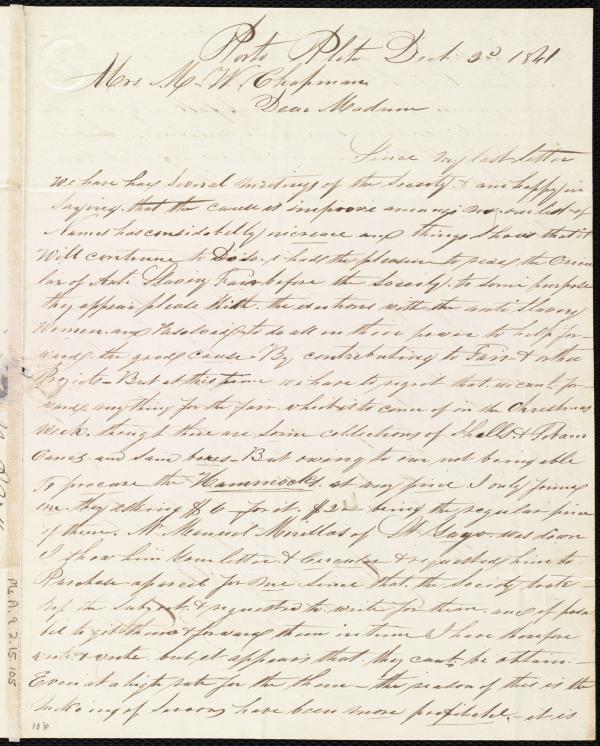 Porto Plate Dec 3d 1841
Mrs. M. W. Chapman
Dear Madam
Since my last letter
we have had several meetings of the Society & am happy in
saying that the cause is improve among us our list of
names has considerably increase and things I hope that it
will continue to do so. I had the pleasure to read the Circu
lar of Anti Slavery Fair before the Society. to some purpose
they appear please with the exertions with the anti Slavery
Women. and Resolved to do all in their power to help for
ward the good cause - By contributing to Fair & other
Projects - But at this time we have to regret that we cant for
ward any thing for the fair which is to come of on the Christmas
week. though there are some collections of Shells & Tobacco
Canes and said boxes - But owing to our not being able
To procure the Hammocks at any price I only found
one they asking $6 - for it. $2 - being the regular price
of them. Mr Manuel of St Yago was down
I show him your letter & Circular & requested him to
Purchase a parcel for me. Since that the Society took
up the subject & requested to write for them and if poss
ble to get them & forward them in time I have therefore
wrote & wrote. but it appears that they cant be obtain. -
Even at a high rate for the time - the reason of this is the
making of have been more profitable - it is
PG A.9.2.15.105
106